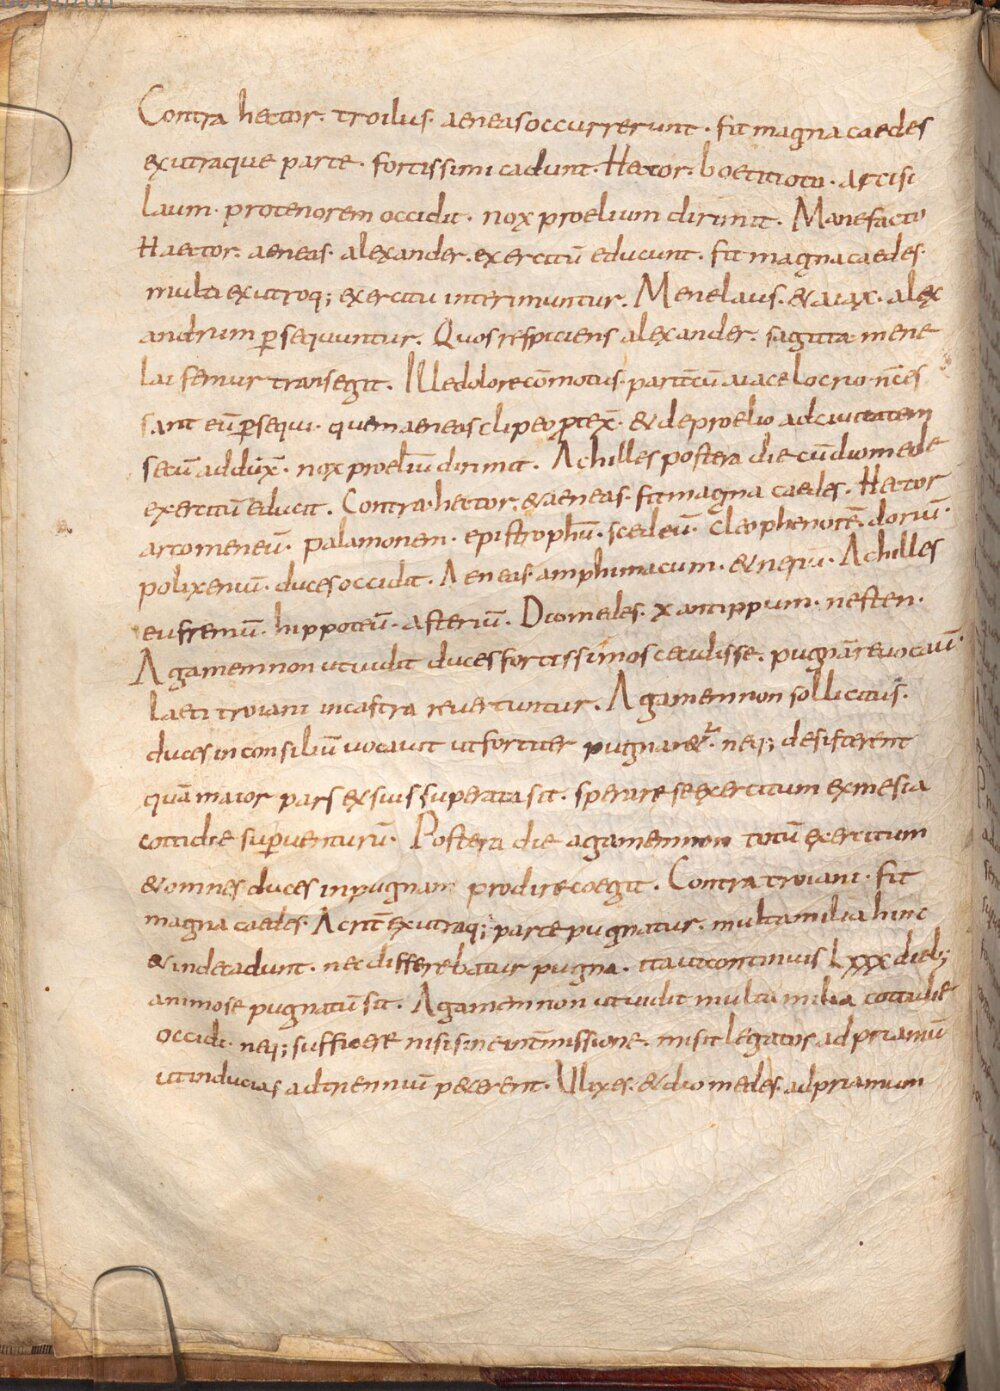 Contra hector· troilus· aeneas occurrerunt· fit magna caedes
ex utraque parte· fortissimi cadunt· Hector· boetitoto· arcisi
laum· protenorem occidit· nox proelium dirimit· Mane facto
Haector· aeneas· alexander· exercitū educunt· fit magna caedes·
multi ex utroq; exercitu interimuntur. Menelaus· & aiax· alex
andrum ꝑsequuntur. Quos respiciens alexander· sagitta mene
lai femur transegit. Ille dolore cōmotus· parit cū aiace locrio· n̄ ces
sant eū ꝑsequi· quem aeneas clipeo ꝓtex̄· & de proelio ad ciuitatem
secū addux̄· nox proeliū dirimit. Achilles postera die cū diomede
exercitū educit. Contra· hector· & aeneas· fit magna caedes· Hector
arcomeneū· palamonem· epistrophū· scedeū· cleophenotē· doriū·
polixeniū· duces occidit. Aeneas· amphimacum· & neriū· Achilles
eufremiū· hippoteū· asteriū. Diomedes· xantippum· nesten·
Agamemnon ut uidit duces fortissimos cecidisse· pugnā reuocauit·
laeti troiani in castra reuertuntur. Agamemnon sollicitus·
duces in consiliū uocauit ut fortiter pugnar&· neq; desisterent
quā maior pars ex suis superata sit· sperare se exercitum ex mesia
cottidie suꝑuenturū· Postera die agamemnon totū exercitum
& omnes duces in pugnam prodire coegit. Contra troiani· fit
magna caedes· Acrit̄ ex utraq; parte pugnatur· multa milia hinc
& inde cadunt· nec differebatur pugna· ita ut continuis Lxxx dieb;
animose pugnatū sit. Agamemnon ut uidit multa milia cottidie
occidi· neq; sufficere nisi sine int̄missione· misit legatos ad priamū
ut inducias ad trienniū p&erent· Ulixes· & diomedes· ad priamum